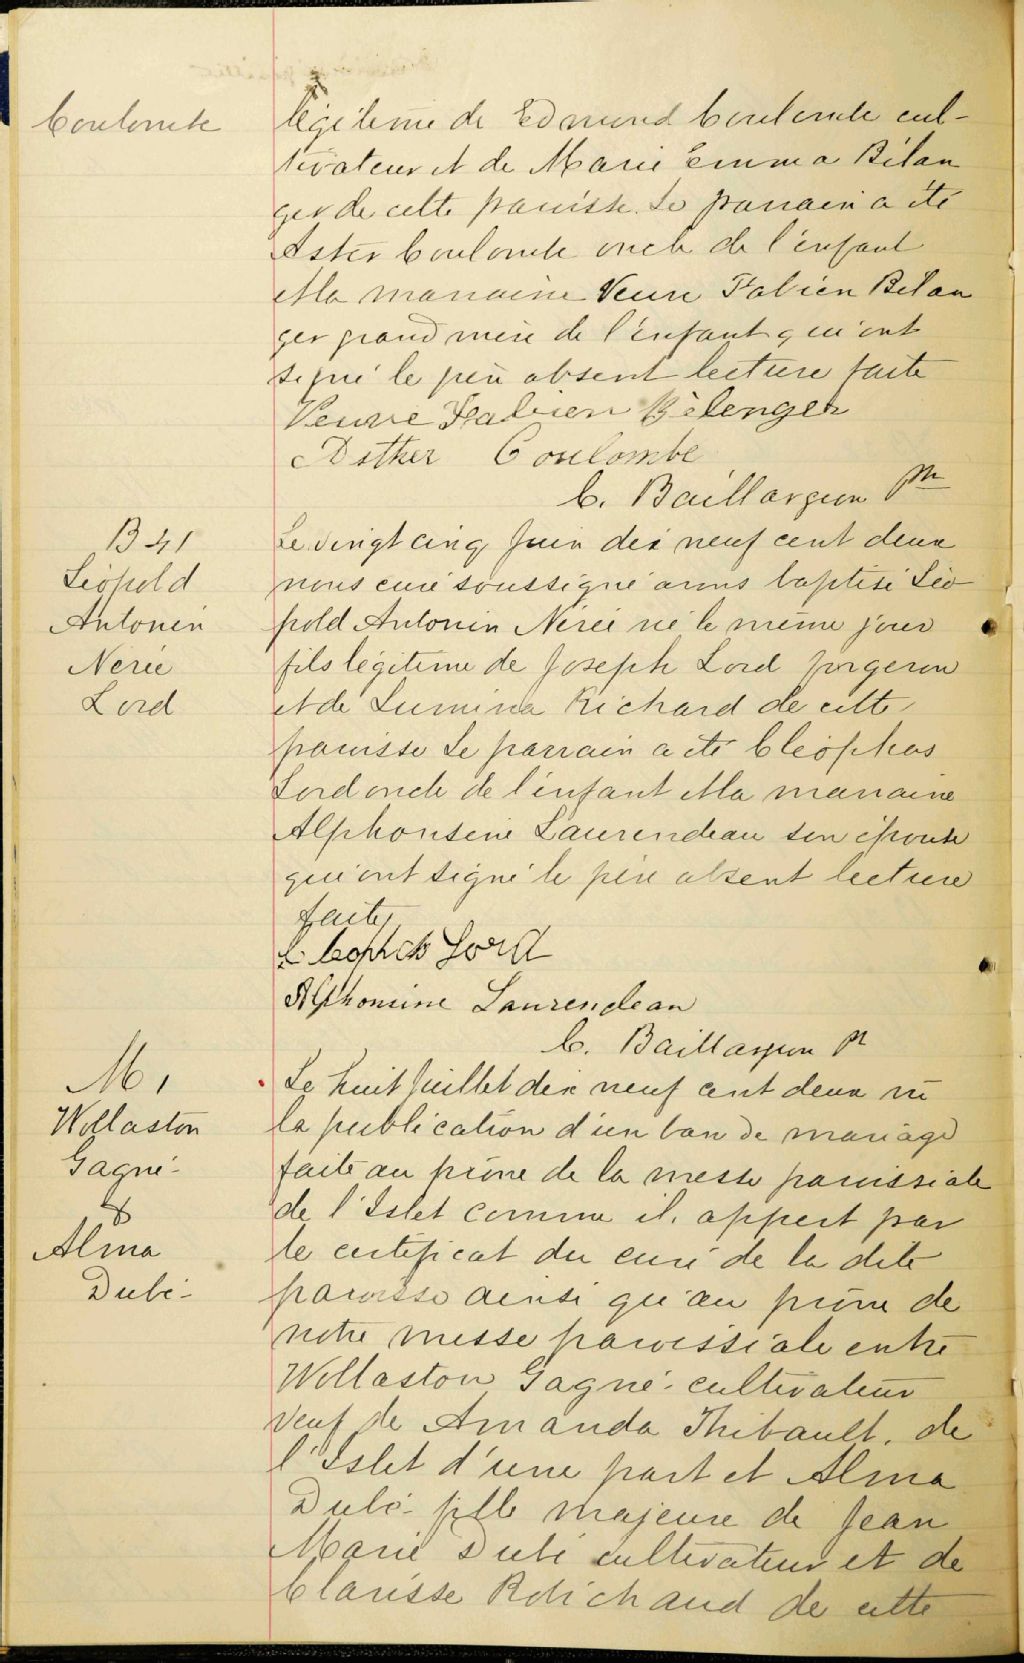 Coulombe
légitime de Edmond Coulombe cul-
tivateur et de Marie Emma Bélan
ger de cette paroisse. Le parrain a été
Aster Coulombe oncle de l'enfant
et la marraine Veuve Fabien Bélan
ger grand mère de l'enfant qui ont
signé le père absent lecture faite
Veuve Fabien Bèlenger
Asther Coulombe
C. Baillargeon Ptre
B 41
Léopold
Antonin
Nérée
Lord
Le vingt cinq Juin dix neuf cent deux
nous curé soussigné avons baptisé Léo
pold Antonin Nérée né le même jour
fils légitime de Joseph Lord forgeron
et de Lumina Richard de cette
paroisse Le parrain a été Cléophas
Lord oncle de l'enfant et la marraine
Alphonsine Laurendeau son épouse
qui ont signé le père absent lecture
faite
Cleophas Lord
Alphonsine Laurendeau
C. Baillargeon Pt
M 1
Wollaston
Gagné
&
Alma
Dubé
Le huit Juillet dix neuf cent deux vu
la publication d'un ban de mariage
faite au prône de la messe paroissiale
de l'Islet comme il appert par
le certificat du curé de la dite
paroisse ainsi qu'au prône de
notre messe paroissiale entre
Wollaston Gagné cultivateur
veuf de Amanda Thibault, de
l'Islet d'une part et Alma
Dubé fille majeure de Jean
Marie Dubé cultivateur et de
Clarisse Robichaud de cette